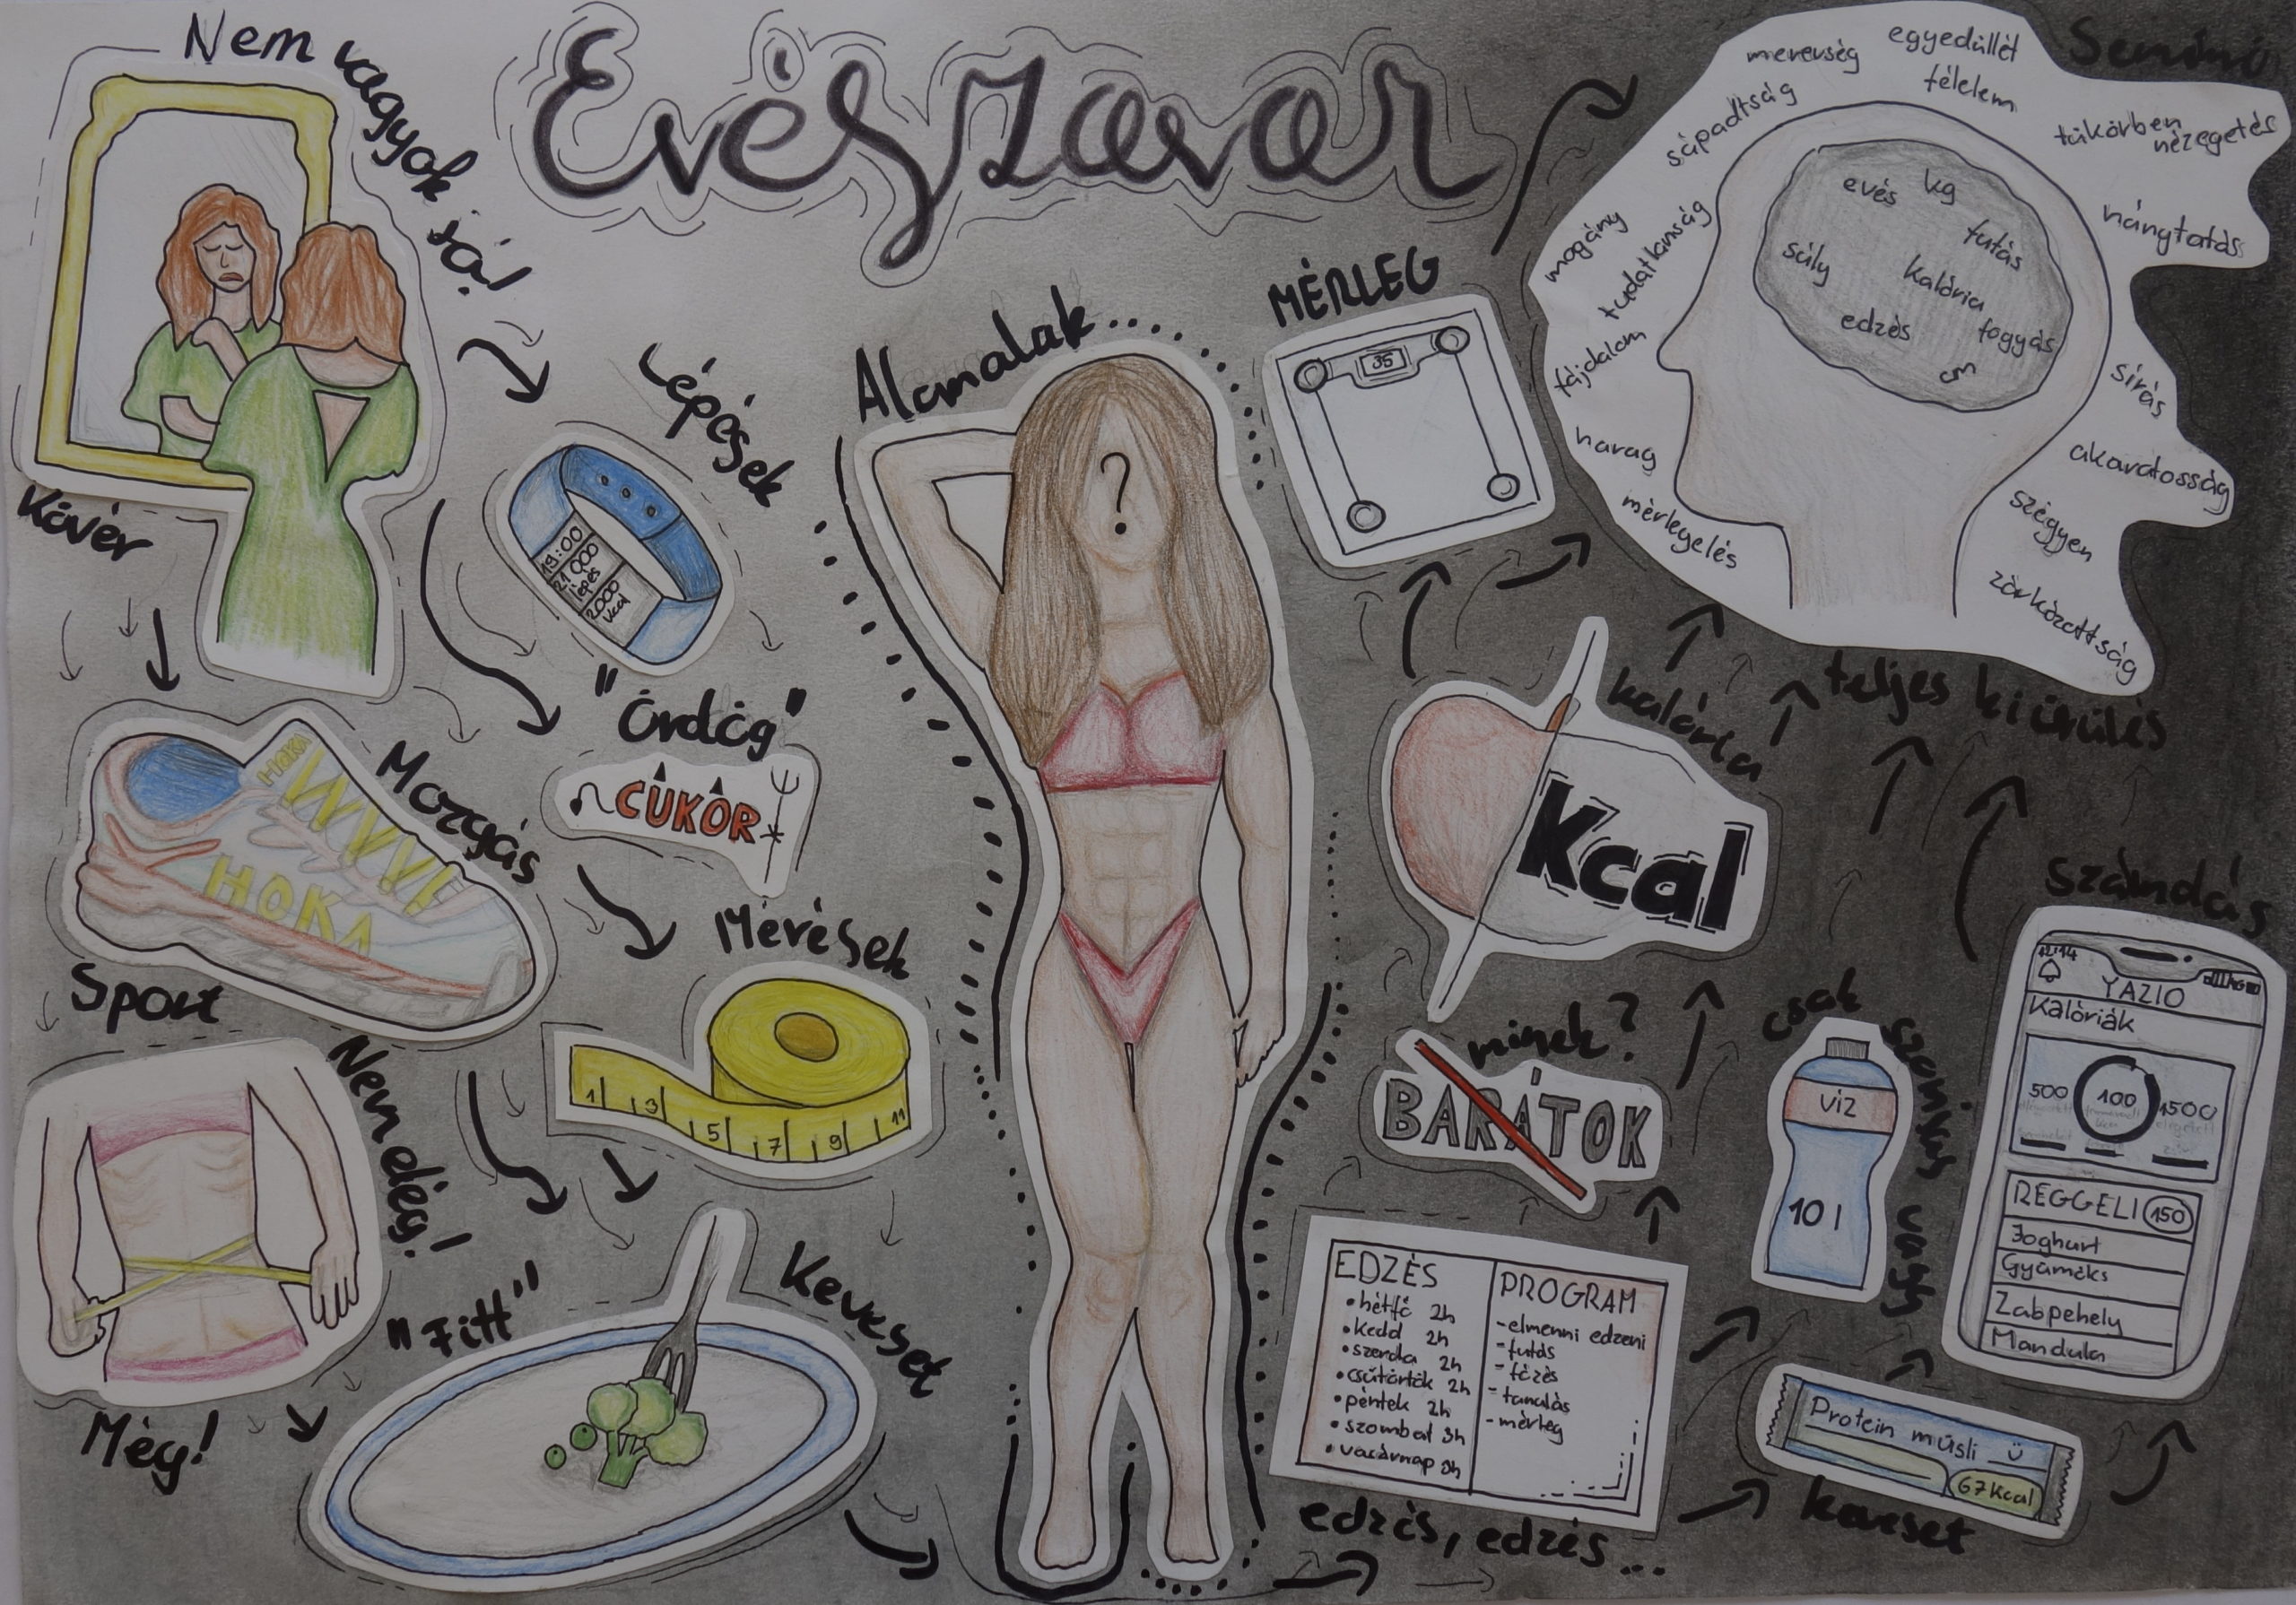 Evészavar
Nem vagyok jó!
Kövér
Lépések
19:00
21000
lépés
2000
kcal
"Ördög"
CUKOR
Mozgás
HOKA
HOKA
Sport
Mérések
1 3 5 7 9 11
Nem elég!
Még!
"Fitt"
Keveset
Álomalak....
?
MÉRLEG
35
kalória
Kcal
minek?
BARÁTOK
EDZÉS
• hétfő 2h
• kedd 2h
• szerda 2h
• csütörtök 2h
• péntek 2h
• szombat 3h
• vasárnap 3h
PROGRAM
- elmenni edzeni
- futás
- főzés
- tanulás
- mérleg
edzés, edzés...
csak szomjas vagy
víz
10 l
Protein müsli ü
67 kcal
keveset
számolás
12:14
YAZIO
Kalóriák
500 100 1500
REGGELI 150
Joghurt
Gyümölcs
Zabpehely
Mandula
teljes kiürülés
Semmi
egyedüllét
merevség
félelem
sápadtság
tükörben
nézegetés
magány
tudatlanság
hánytatás
fájdalom
harag
mérlegelés
sírás
akaratosság
szégyen
zárkózottság
evés
kg
futás
súly
kalória
edzés
fogyás
cm